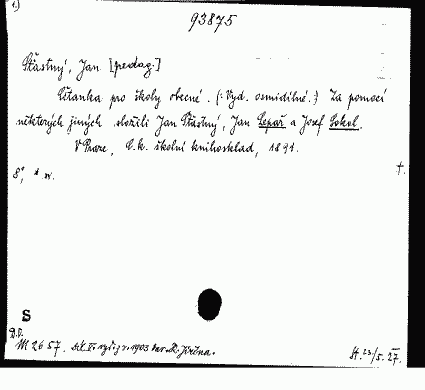 1.)
93875
Šťastný, Jan [pedag.]
Čítanka pro školy obecné. (: Vyd. osmidílné. :) Za pomoci
některých jiných složili Jan Šťastný, Jan Lepař a Josef Sokol.
V Praze, C. k. školní knihosklad, 1891.
8°, sv. †.
S
D.D.
M 2657. díl V. z r. 1903
St. 23/5. 27.